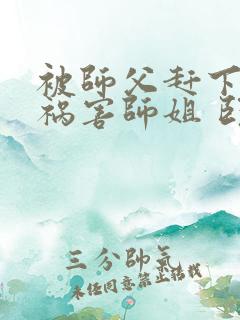 被師父赶下
祸害師姐
三分帥氣
未经同意禁止转载